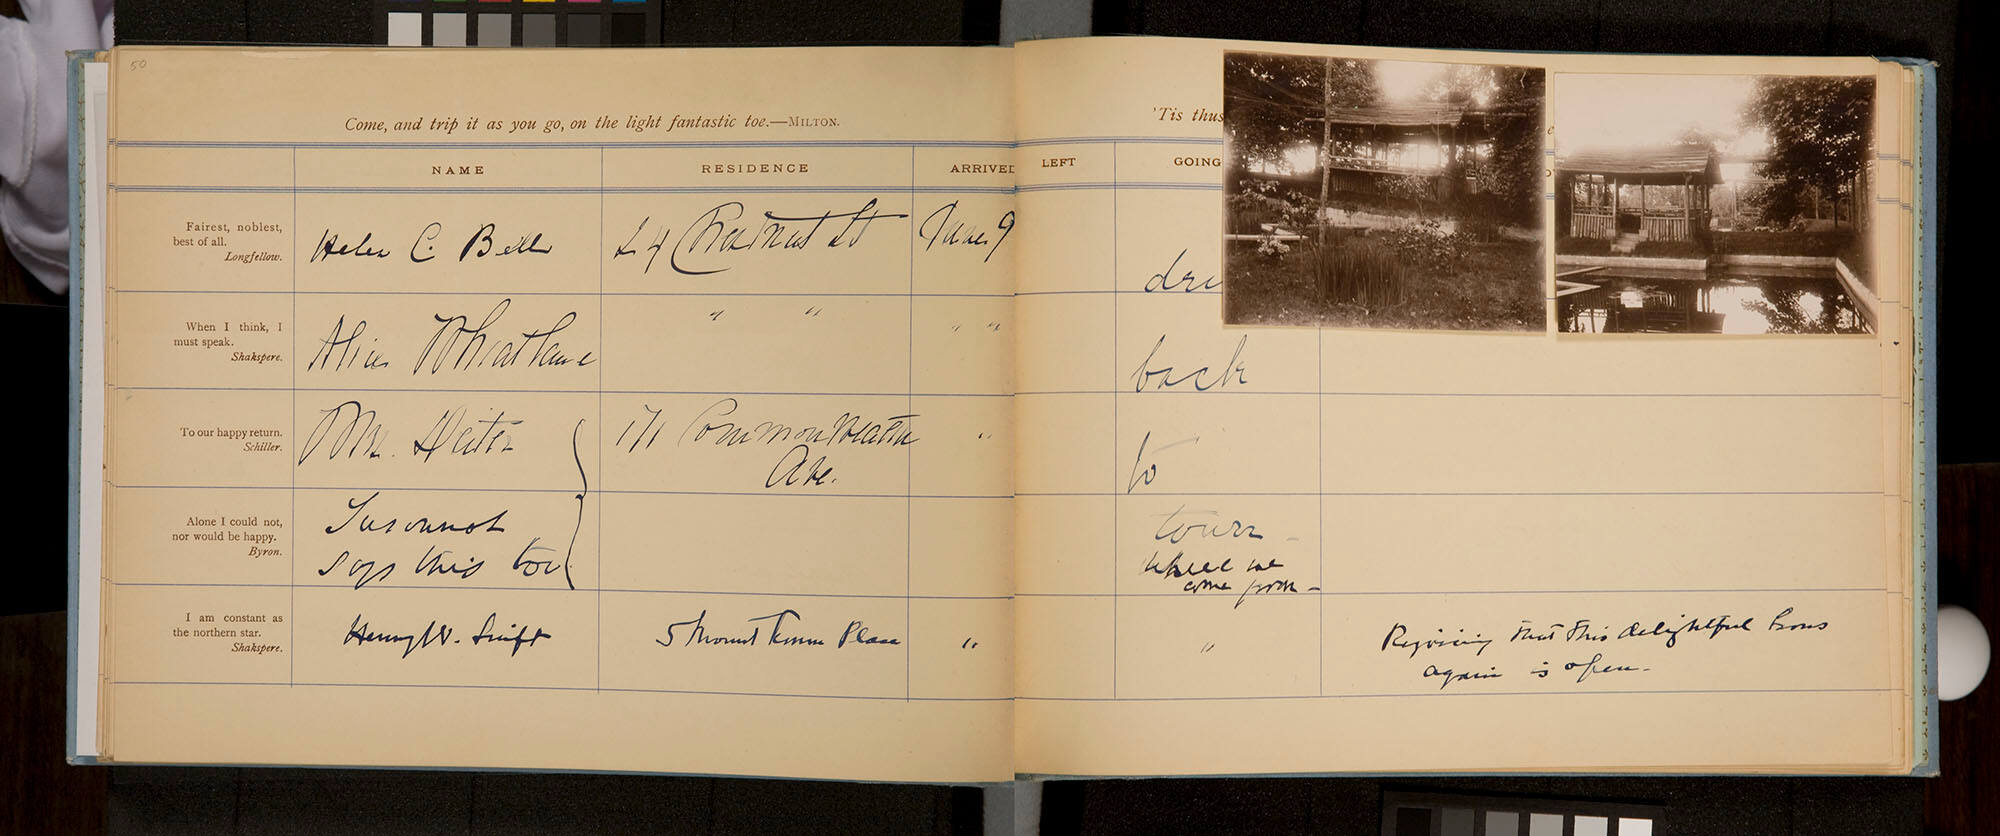 50
Come, and trip it as you go, on the light fantastic toe.—MILTON.
'Tis thus
NAME RESIDENCE ARRIVED LEFT GOING
Fairest, noblest,
best of all.
Longfellow.
Helen C. Bell 24 Chestnut St June 9
When I think, I
must speak.
Shakspere.
Alice " " " "
back
To our happy return.
Schiller.
Mrs. 171 Commonwealth "
Ave.
to
Alone I could not,
nor would be happy.
Byron.
says this too
town
where we
come from –
I am constant as
the northern star.
Shakspere.
Henry W. Swift 5 Mount Place " "
Rejoicing that this delightful house
again is open –